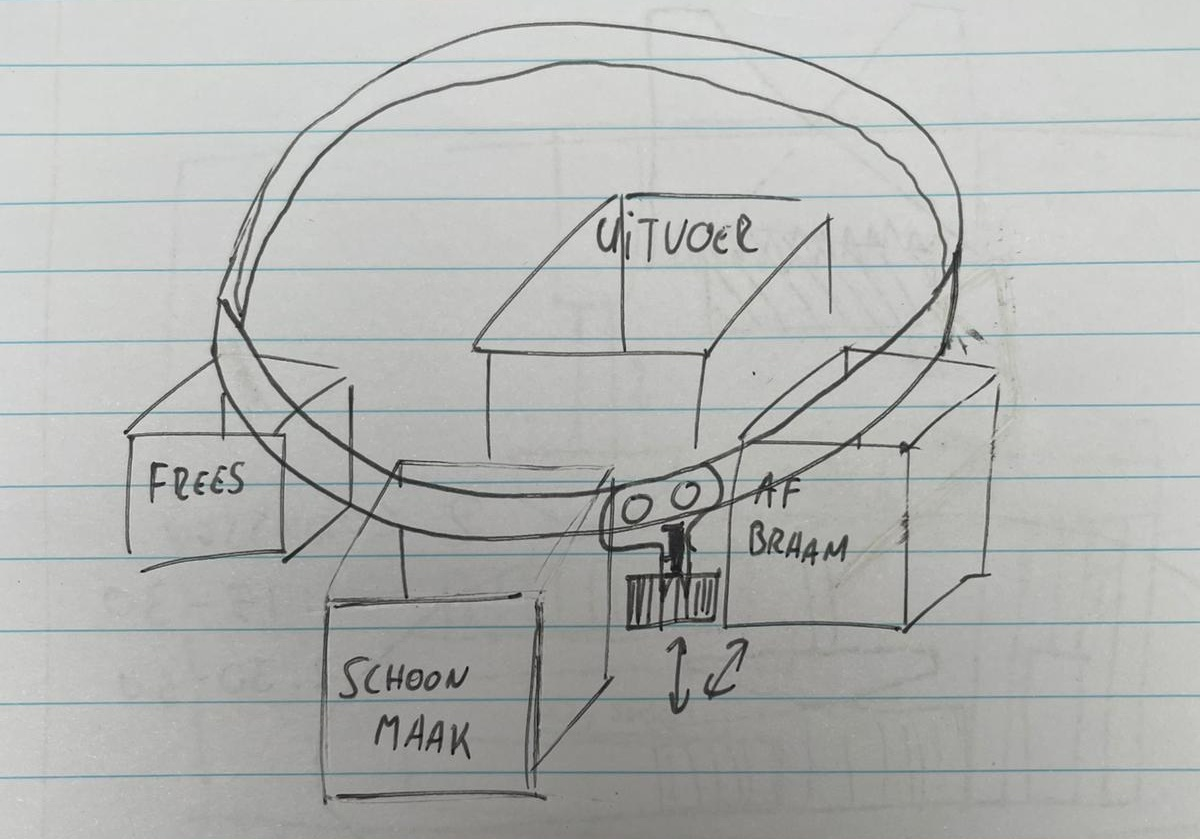 UiTVOER
FREES
AF
BRAAM
SCHOON
MAAK